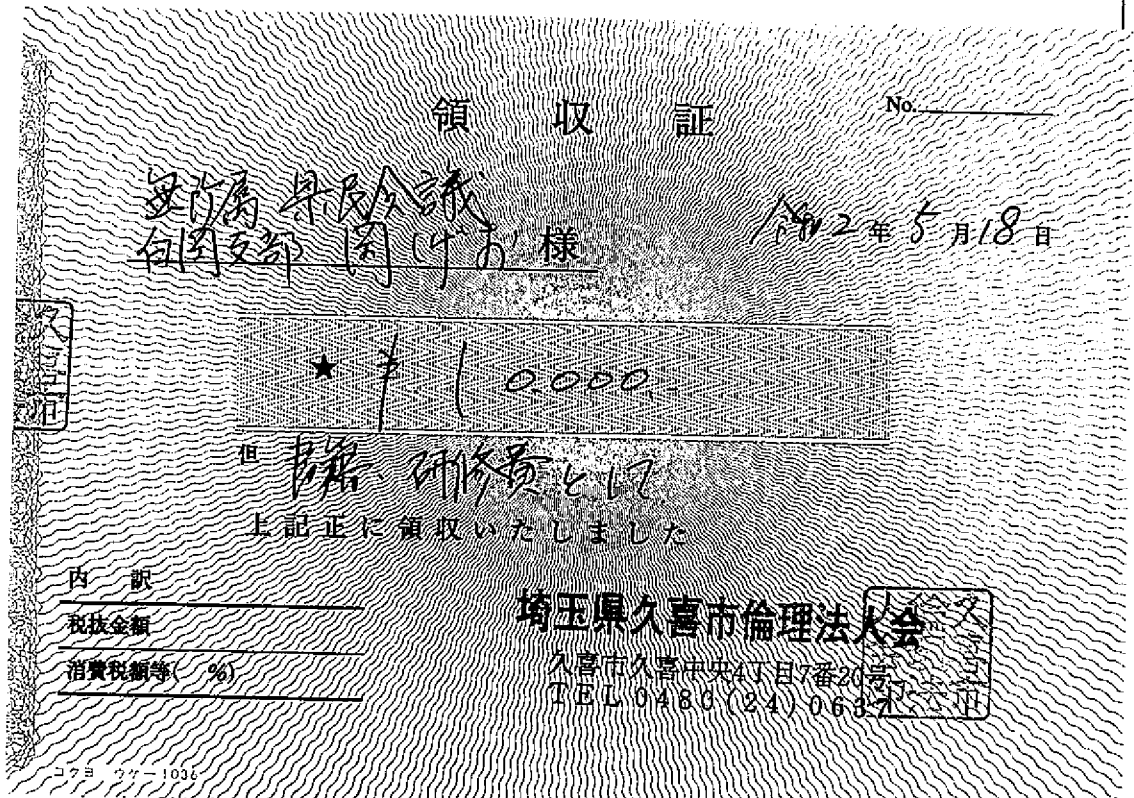 領収証
No.
無所属 県民会議
白岡支部 関 しげお 様
令和2年5月18日
★ ¥10,000.
但 研修費として
上記正に領収いたしました
内訳
税抜金額
消費税額等( %)
埼玉県久喜市倫理法人会
久喜市久喜中央4丁目7番20号
TEL 0480(24)0637
コクヨ ウケー1036